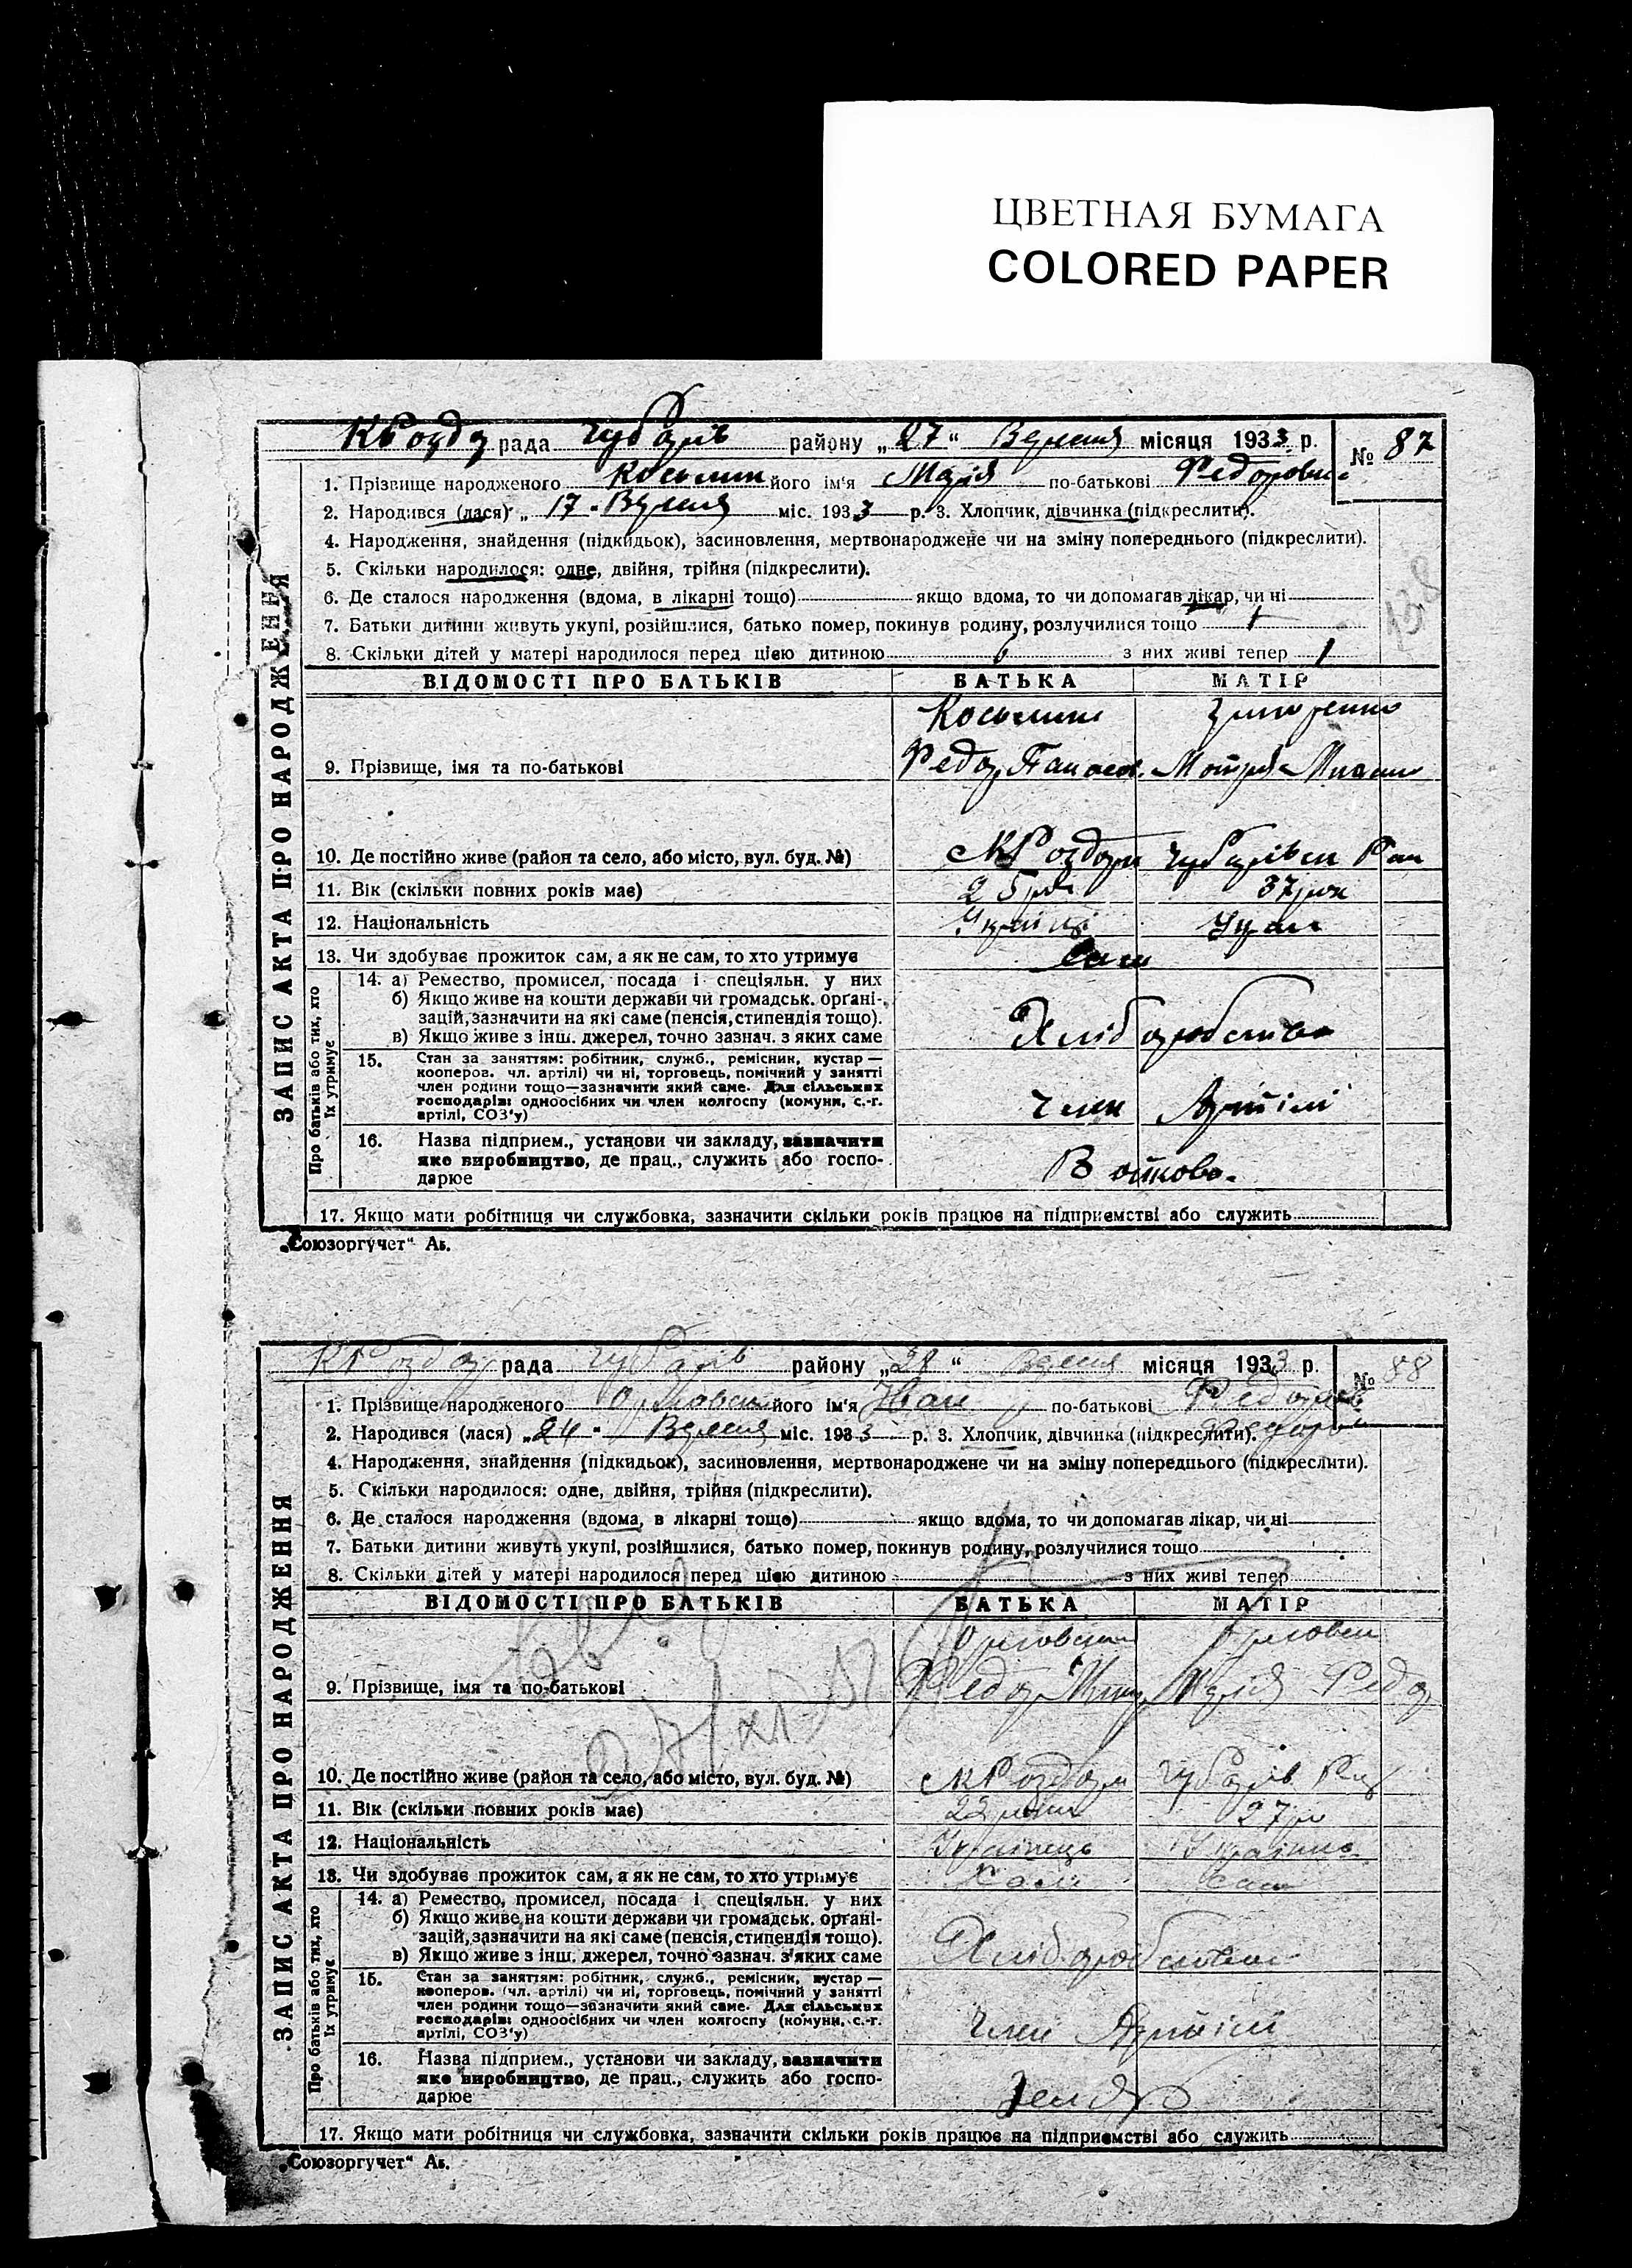 ЦВЕТНАЯ БУМАГА
COLORED PAPER
рада Чубарів району „27“ Вересня місяця 1933 р. № 87
1. Прізвище народженого його ім'я Марія по-батькові Федоровна
2. Народився (лася) „17“ Вересня міс. 1933 р. 3. Хлопчик, дівчинка (підкреслити).
4. Народження, знайдення (підкидьок), засиновлення, мертвонароджене чи на зміну попереднього (підкреслити).
5. Скільки народилося: одне, двійня, трійня (підкреслити).
6. Де сталося народження (вдома, в лікарні тощо) якщо вдома, то чи допомагав лікар, чи ні
7. Батьки дитини живуть укупі, розійшлися, батько помер, покинув родину, розлучилися тощо
8. Скільки дітей у матері народилося перед цією дитиною з них живі тепер 1
ЗАПИС АКТА ПРО НАРОДЖЕННЯ
ВІДОМОСТІ ПРО БАТЬКІВ БАТЬКА МАТІР
9. Прізвище, імя та по-батькові Федор Панасов. Мотря
10. Де постійно живе (район та село, або місто, вул. буд. №)
11. Вік (скільки повних років має) 25 37
12. Національність
13. Чи здобуває прожиток сам, а як не сам, то хто утримує Сам
Про батьків або тих, хто їх утримує
14. а) Ремество, промисел, посада і спеціяльн. у них
б) Якщо живе на кошти держави чи громадськ. органі-
зацій, зазначити на які саме (пенсія, стипендія тощо).
в) Якщо живе з інш. джерел, точно зазнач. з яких саме
Хліборобство
15. Стан за заняттям: робітник, служб., ремісник, кустар —
кооперов. чл. артілі) чи ні, торговець, помічний у занятті
член родини тощо—зазначити який саме. Для сільських
господарів: одноосібних чи член колгоспу (комуни, с.-г.
артілі, СОЗ'у)
Член Артілі
16. Назва підприєм., установи чи закладу, зазначити
яке виробництво, де прац., служить або госпо-
дарює
Войково.
17. Якщо мати робітниця чи службовка, зазначити скільки років працює на підприємстві або служить
„Союзоргучет“ Ав.
рада Чубарів району „28“ Вересня місяця 1933 р. № 88
1. Прізвище народженого його ім'я Іван по-батькові
2. Народився (лася) „24“ Вересня міс. 1933 р. 3. Хлопчик, дівчинка (підкреслити).
4. Народження, знайдення (підкидьок), засиновлення, мертвонароджене чи на зміну попереднього (підкреслити).
5. Скільки народилося: одне, двійня, трійня (підкреслити).
6. Де сталося народження (вдома, в лікарні тощо) якщо вдома, то чи допомагав лікар, чи ні
7. Батьки дитини живуть укупі, розійшлися, батько помер, покинув родину, розлучилися тощо
8. Скільки дітей у матері народилося перед цією дитиною з них живі тепер
ЗАПИС АКТА ПРО НАРОДЖЕННЯ
ВІДОМОСТІ ПРО БАТЬКІВ БАТЬКА МАТІР
9. Прізвище, імя та по-батькові Федор Марія Федор
10. Де постійно живе (район та село, або місто, вул. буд. №)
11. Вік (скільки повних років має) 22 27
12. Національність Українець
13. Чи здобуває прожиток сам, а як не сам, то хто утримує Сам Сам
Про батьків або тих, хто їх утримує
14. а) Ремество, промисел, посада і спеціяльн. у них
б) Якщо живе на кошти держави чи громадськ. органі-
зацій, зазначити на які саме (пенсія, стипендія тощо).
в) Якщо живе з інш. джерел, точно зазнач. з яких саме
Хліборобство
15. Стан за заняттям: робітник, служб., ремісник, кустар —
кооперов. (чл. артілі) чи ні, торговець, помічний у занятті
член родини тощо—зазначити який саме. Для сільських
господарів: одноосібних чи член колгоспу (комуни, с.-г.
артілі, СОЗ'у)
Член Артілі
16. Назва підприєм., установи чи закладу, зазначити
яке виробництво, де прац., служить або госпо-
дарює
17. Якщо мати робітниця чи службовка, зазначити скільки років працює на підприємстві або служить
„Союзоргучет“ Ав.